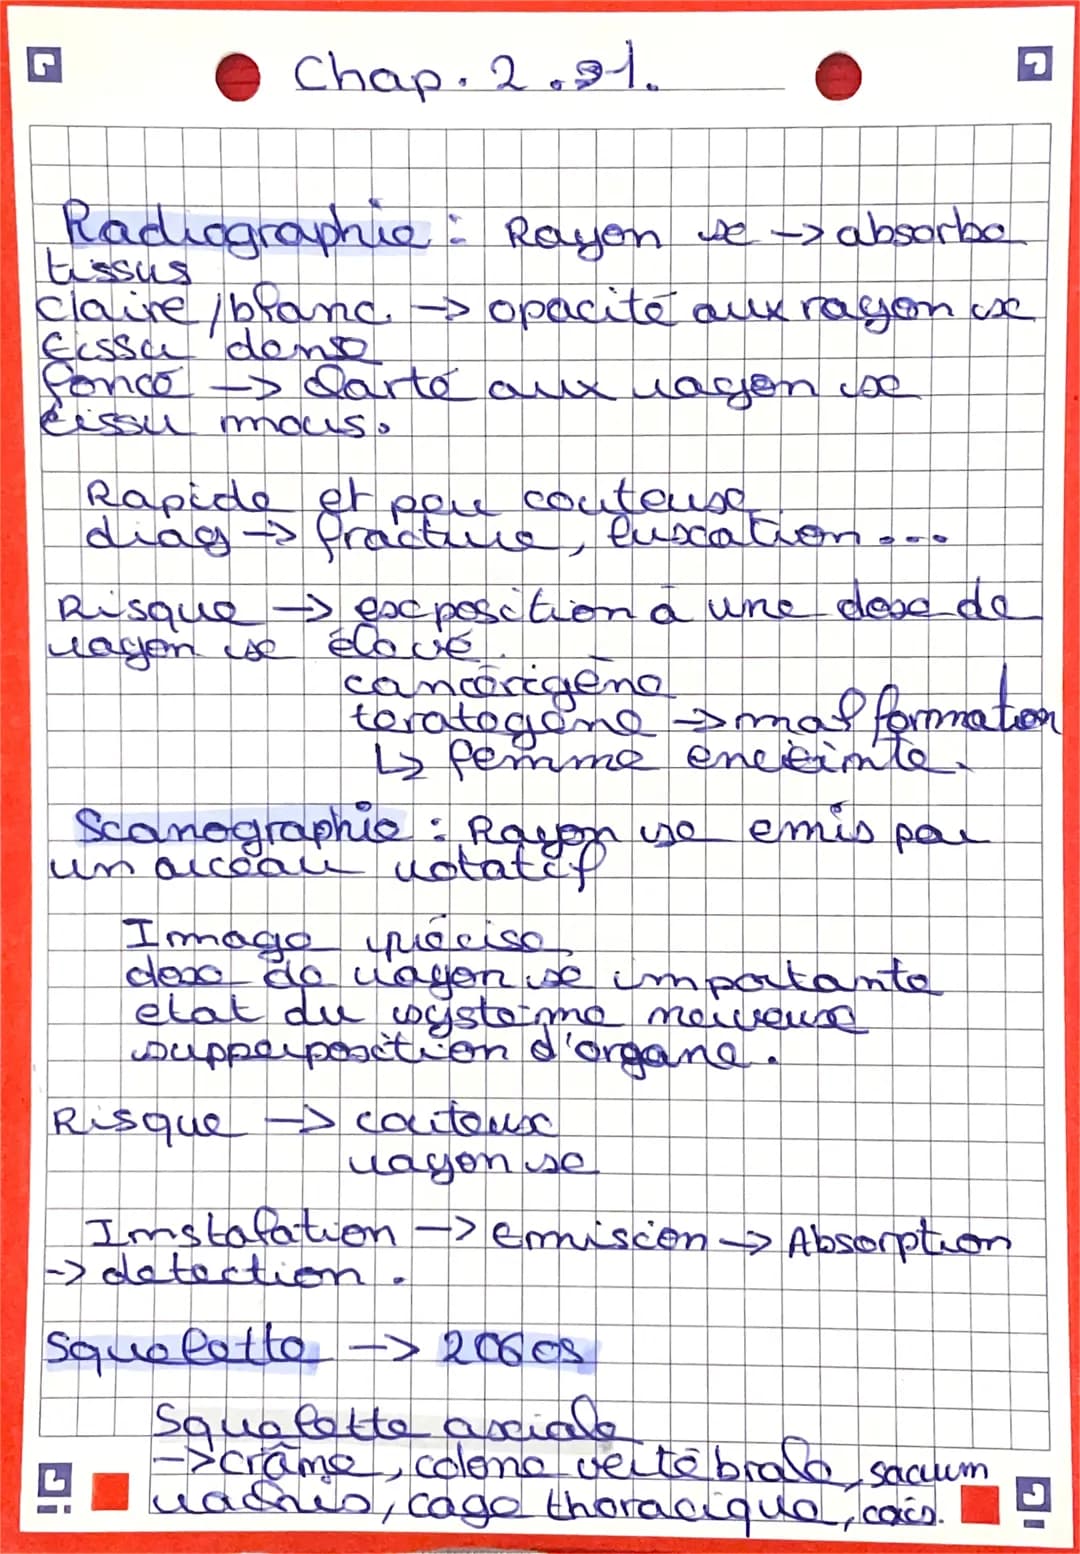 Chap. 2.
Radiographie : Rayon x -> absorbe
tissus
Claire / blanc -> opacité aux rayon x
tissu dense
foncé -> Clarté aux rayon x
tissu mous.
Rapide et peu couteuse
diag -> fracture, luxation...
Risque -> exposition à une dose de
rayon x élevé.
cancérigène
teratogène -> malformation
↳ femme enceinte.
Scanographie : Rayon x emis par
un arceau rotatif
Image précise
dose de rayon x importante
etat du système nerveux
supperposition d'organe.
Risque -> couteux
rayon x
Installation -> emission -> Absorption
-> detection.
Squelette -> 206 os
Squelette axiale
-> crâne, colone vertébrale, sacrum
cage thoracique,